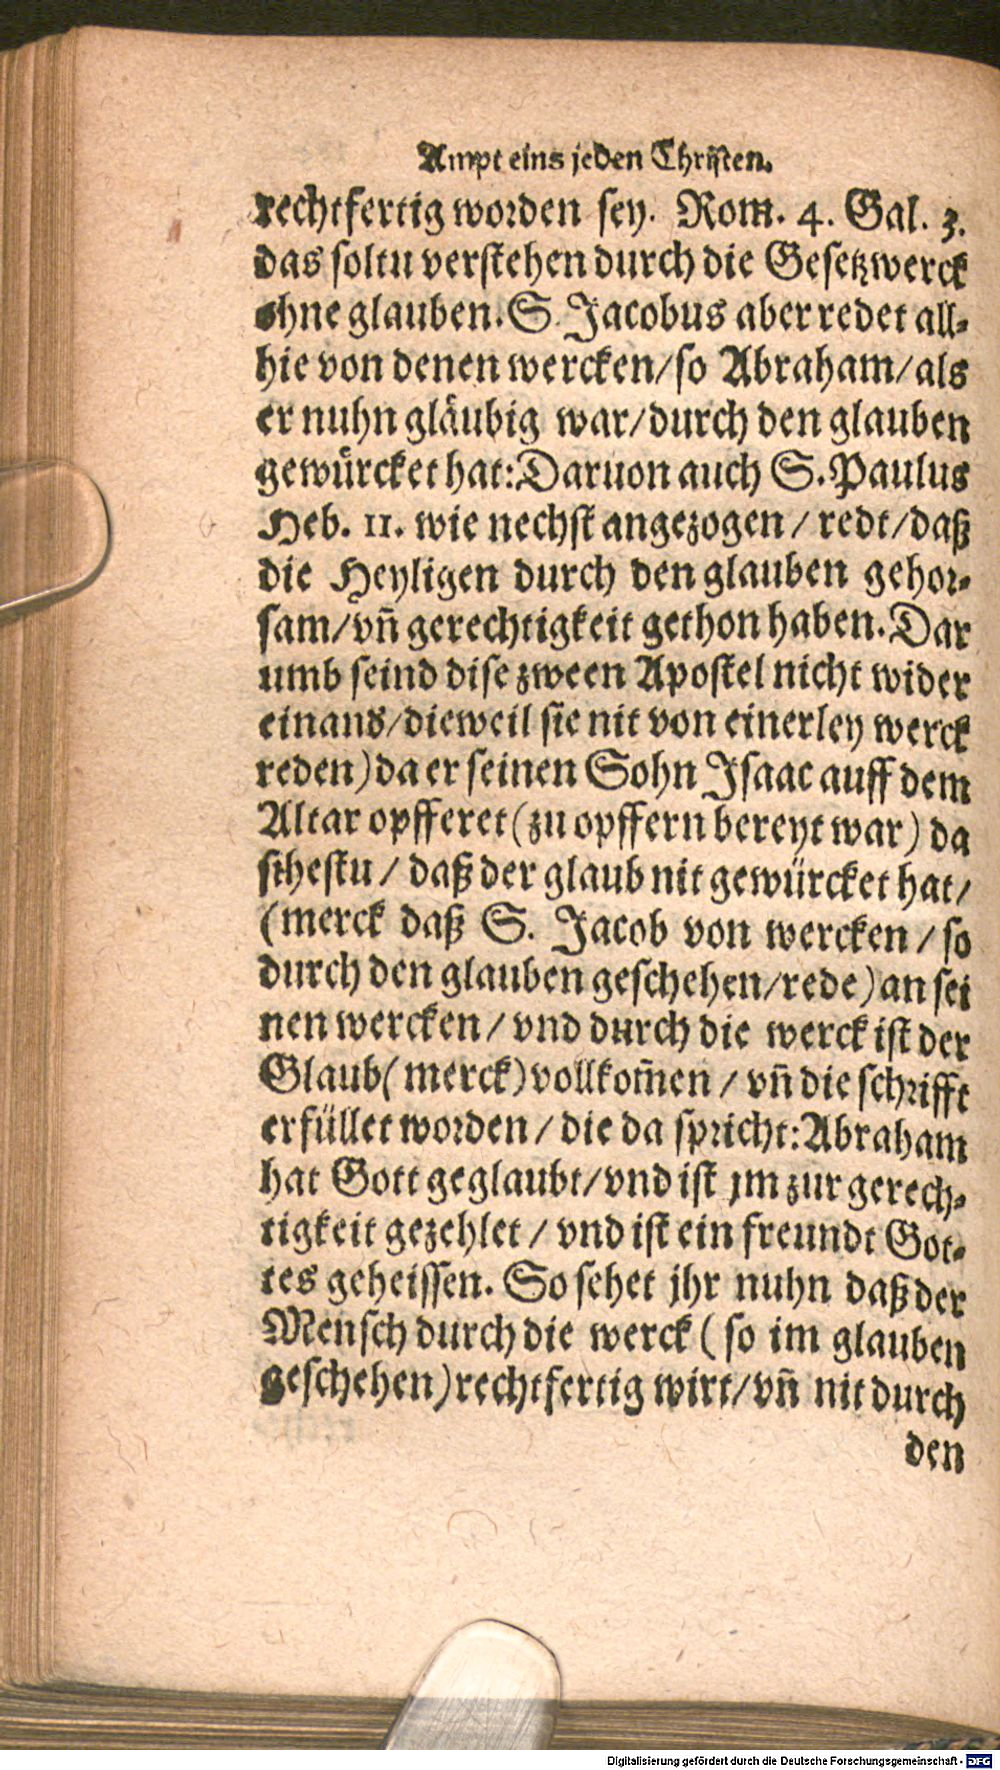 Ampt eins jeden Christen.
rechtfertig worden sey. Rom. 4. Gal. 3.
das soltu verstehen durch die Gesetzwerck
ohne glauben. S. Jacobus aber redet all-
hie von denen wercken/so Abraham/als
er nuhn gläubig war/durch den glauben
gewürcket hat: Daruon auch S. Paulus
Heb. 11. wie nechst angezogen/ redt/daß
die Heyligen durch den glauben gehor-
sam/vñ gerechtigkeit gethon haben. Dar
umb seind dise zween Apostel nicht wider
einans/dieweil sie nit von einerley werck
reden) da er seinen Sohn Isaac auff dem
Altar opfferet (zu opffern bereyt war) da
sihestu/ daß der glaub nit gewürcket hat/
(merck daß S. Jacob von wercken/so
durch den glauben geschehen/rede) an sei
nen wercken/ vnd durch die werck ist der
Glaub (merck) vollkom̃en/ vñ die schrifft
erfüllet worden/ die da spricht: Abraham
hat Gott geglaubt/vnd ist jm zur gerech-
tigkeit gezehlet/ vnd ist ein freundt Got-
tes geheissen. So sehet jhr nuhn daß der
Mensch durch die werck (so im glauben
geschehen) rechtfertig wirt/vñ nit durch
den
Digitalisierung gefördert durch die Deutsche Forschungsgemeinschaft - DFG